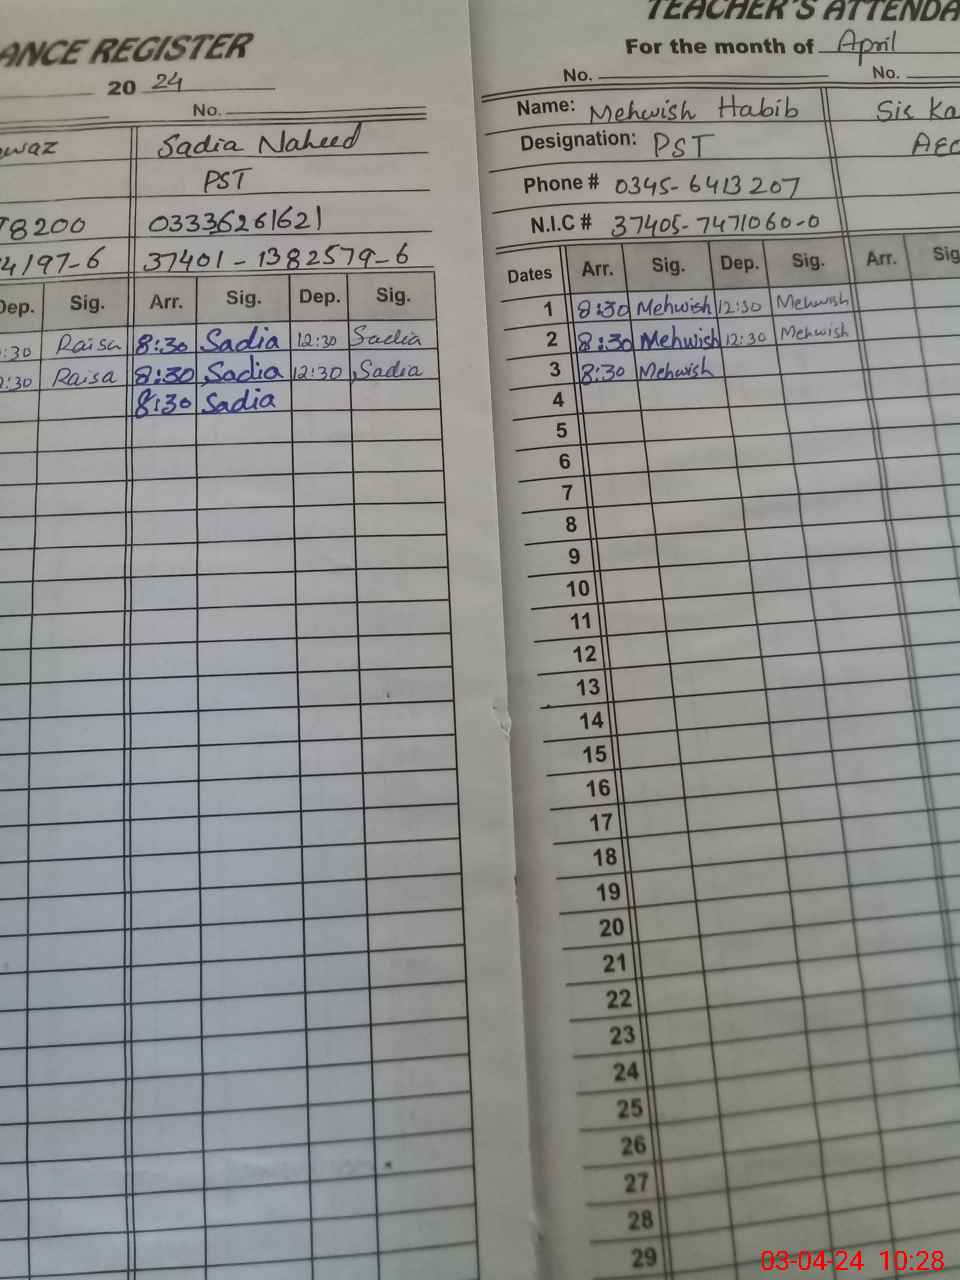 ANCE REGISTER
20 24
No.
Sadia Naheed
PST
T8200 03336261621
4197-6 37401-1382579-6
Dep. Sig. Arr. Sig. Dep. Sig.
:30 Raisa 8:30 Sadia 12:30 Sadia
2:30 Raisa 8:30 Sadia 12:30 Sadia
8:30 Sadia
TEACHER'S ATTENDA
For the month of April
No. No.
Name: Mehwish Habib Sis Ka
Designation: PST AEO
Phone # 0345-6413207
N.I.C # 37405-7471060-0
Dates Arr. Sig. Dep. Sig. Arr. Sig
1 8:30 Mehwish 12:30 Mehwish
2 8:30 Mehwish 12:30 Mehwish
3 8:30 Mehwish
4
5
6
7
8
9
10
11
12
13
14
15
16
17
18
19
20
21
22
23
24
25
26
27
28
29
03-04-24 10:28